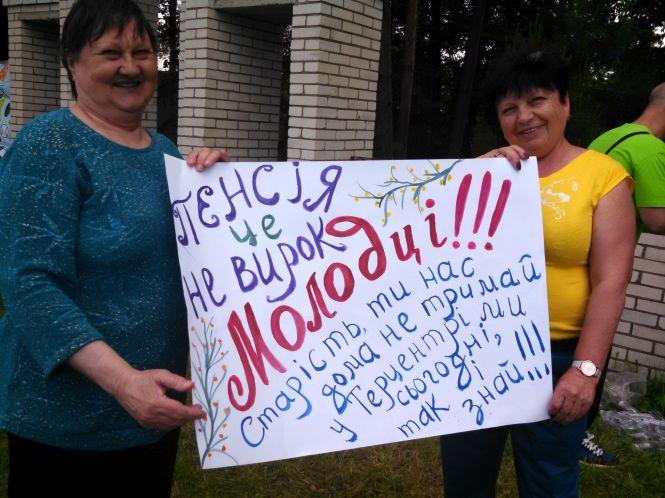 ПЕНСІЯ
це
не вирок
Молодці!!!
Старість, ти нас
дома не тримай
у Терцентрі ми
сьогодні,
так і знай!!!